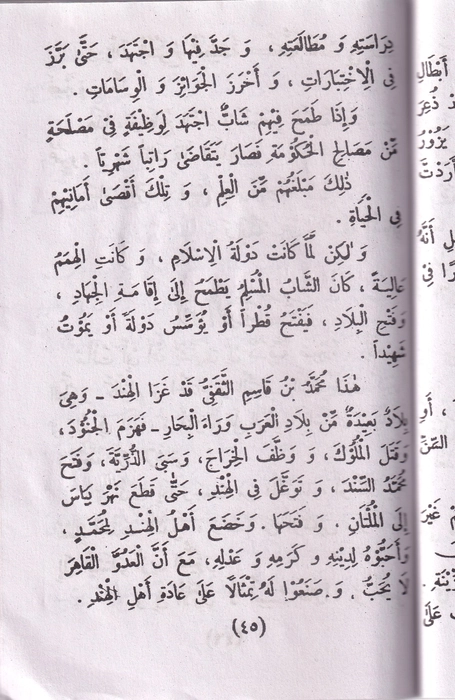 دِرَاسَتِهِ وَ مُطَالَعَتِهِ ، وَ جَدَّ فِيْهَا وَ اجْتَهَدَ ، حَتَّىٰ بَرَّزَ
فِى الْاِخْتِبَارَاتِ ، وَ أَحْرَزَ الْجَوَائِزَ وَ الْوِسَامَاتِ .
وَ إِذَا طَمَحَ فِيْهِمْ شَابٌّ اجْتَهَدَ لِوَظِيْفَةٍ فِىْ مَصْلَحَةٍ
مِّنْ مَصَالِحِ الْحُكُوْمَةِ فَصَارَ يَتَقَاضىٰ رَاتِباً شَهْرِيًّا .
ذٰلِكَ مَبْلَغُهُمْ مِّنَ الْعِلْمِ ، وَ تِلْكَ أَقْصىٰ أَمَانِيْهِمْ
فِى الْحَيَاةِ .
وَ لٰكِنْ لَمَّا كَانَتْ دَوْلَةُ الْاِسْلَامِ ، وَ كَانَتِ الْهِمَمُ
عَالِيَةً ، كَانَ الشَّابُّ الْمُسْلِمُ يَطْمَحُ إِلىٰ إِقَامَةِ الْجِهَادِ ،
وَفَتْحِ الْبِلَادِ ، فَيَفْتَحُ قُطْراً أَوْ يُؤَسِّسُ دَوْلَةً أَوْ يَمُوْتُ
شَهِيْداً .
هٰذَا مُحَمَّدُ بْنُ قَاسِمِ الثَّقَفِىُّ قَدْ غَزَا الْهِنْدَ ـ وَهِىَ
بِلَادٌ بَعِيْدَةٌ مِّنْ بِلَادِ الْعَرَبِ وَرَاءَ الْبِحَارِ ـ فَهَزَمَ الْجُنُوْدَ ،
وَقَتَلَ الْمُلُوْكَ ، وَ وَظَّفَ الْخِرَاجَ ، وَسَبَى الذُّرِّيَّةَ ، وَفَتَحَ
مُحَمَّدُ السِّنْدَ ، وَ تَوَغَّلَ فِى الْهِنْدِ ، حَتّٰى قَطَعَ نَهْرَ بَيَاسَ
إِلَى الْمُلْتَانِ ، وَ فَتَحَهَا . وَ خَضَعَ أَهْلُ الْهِنْدِ لِمُحَمَّدٍ ،
وَأَحَبُّوْهُ لِدِيْنِهِ و كَرَمِهِ وَ عَدْلِهِ ، مَعَ أَنَّ الْعَدُوَّ الْقَاهِرَ
لَا يُحَبُّ ، وَ صَنَعُوْا لَهُ تِمْثَالًا عَلىٰ عَادَةِ أَهْلِ الْهِنْدِ .
(٤٥)